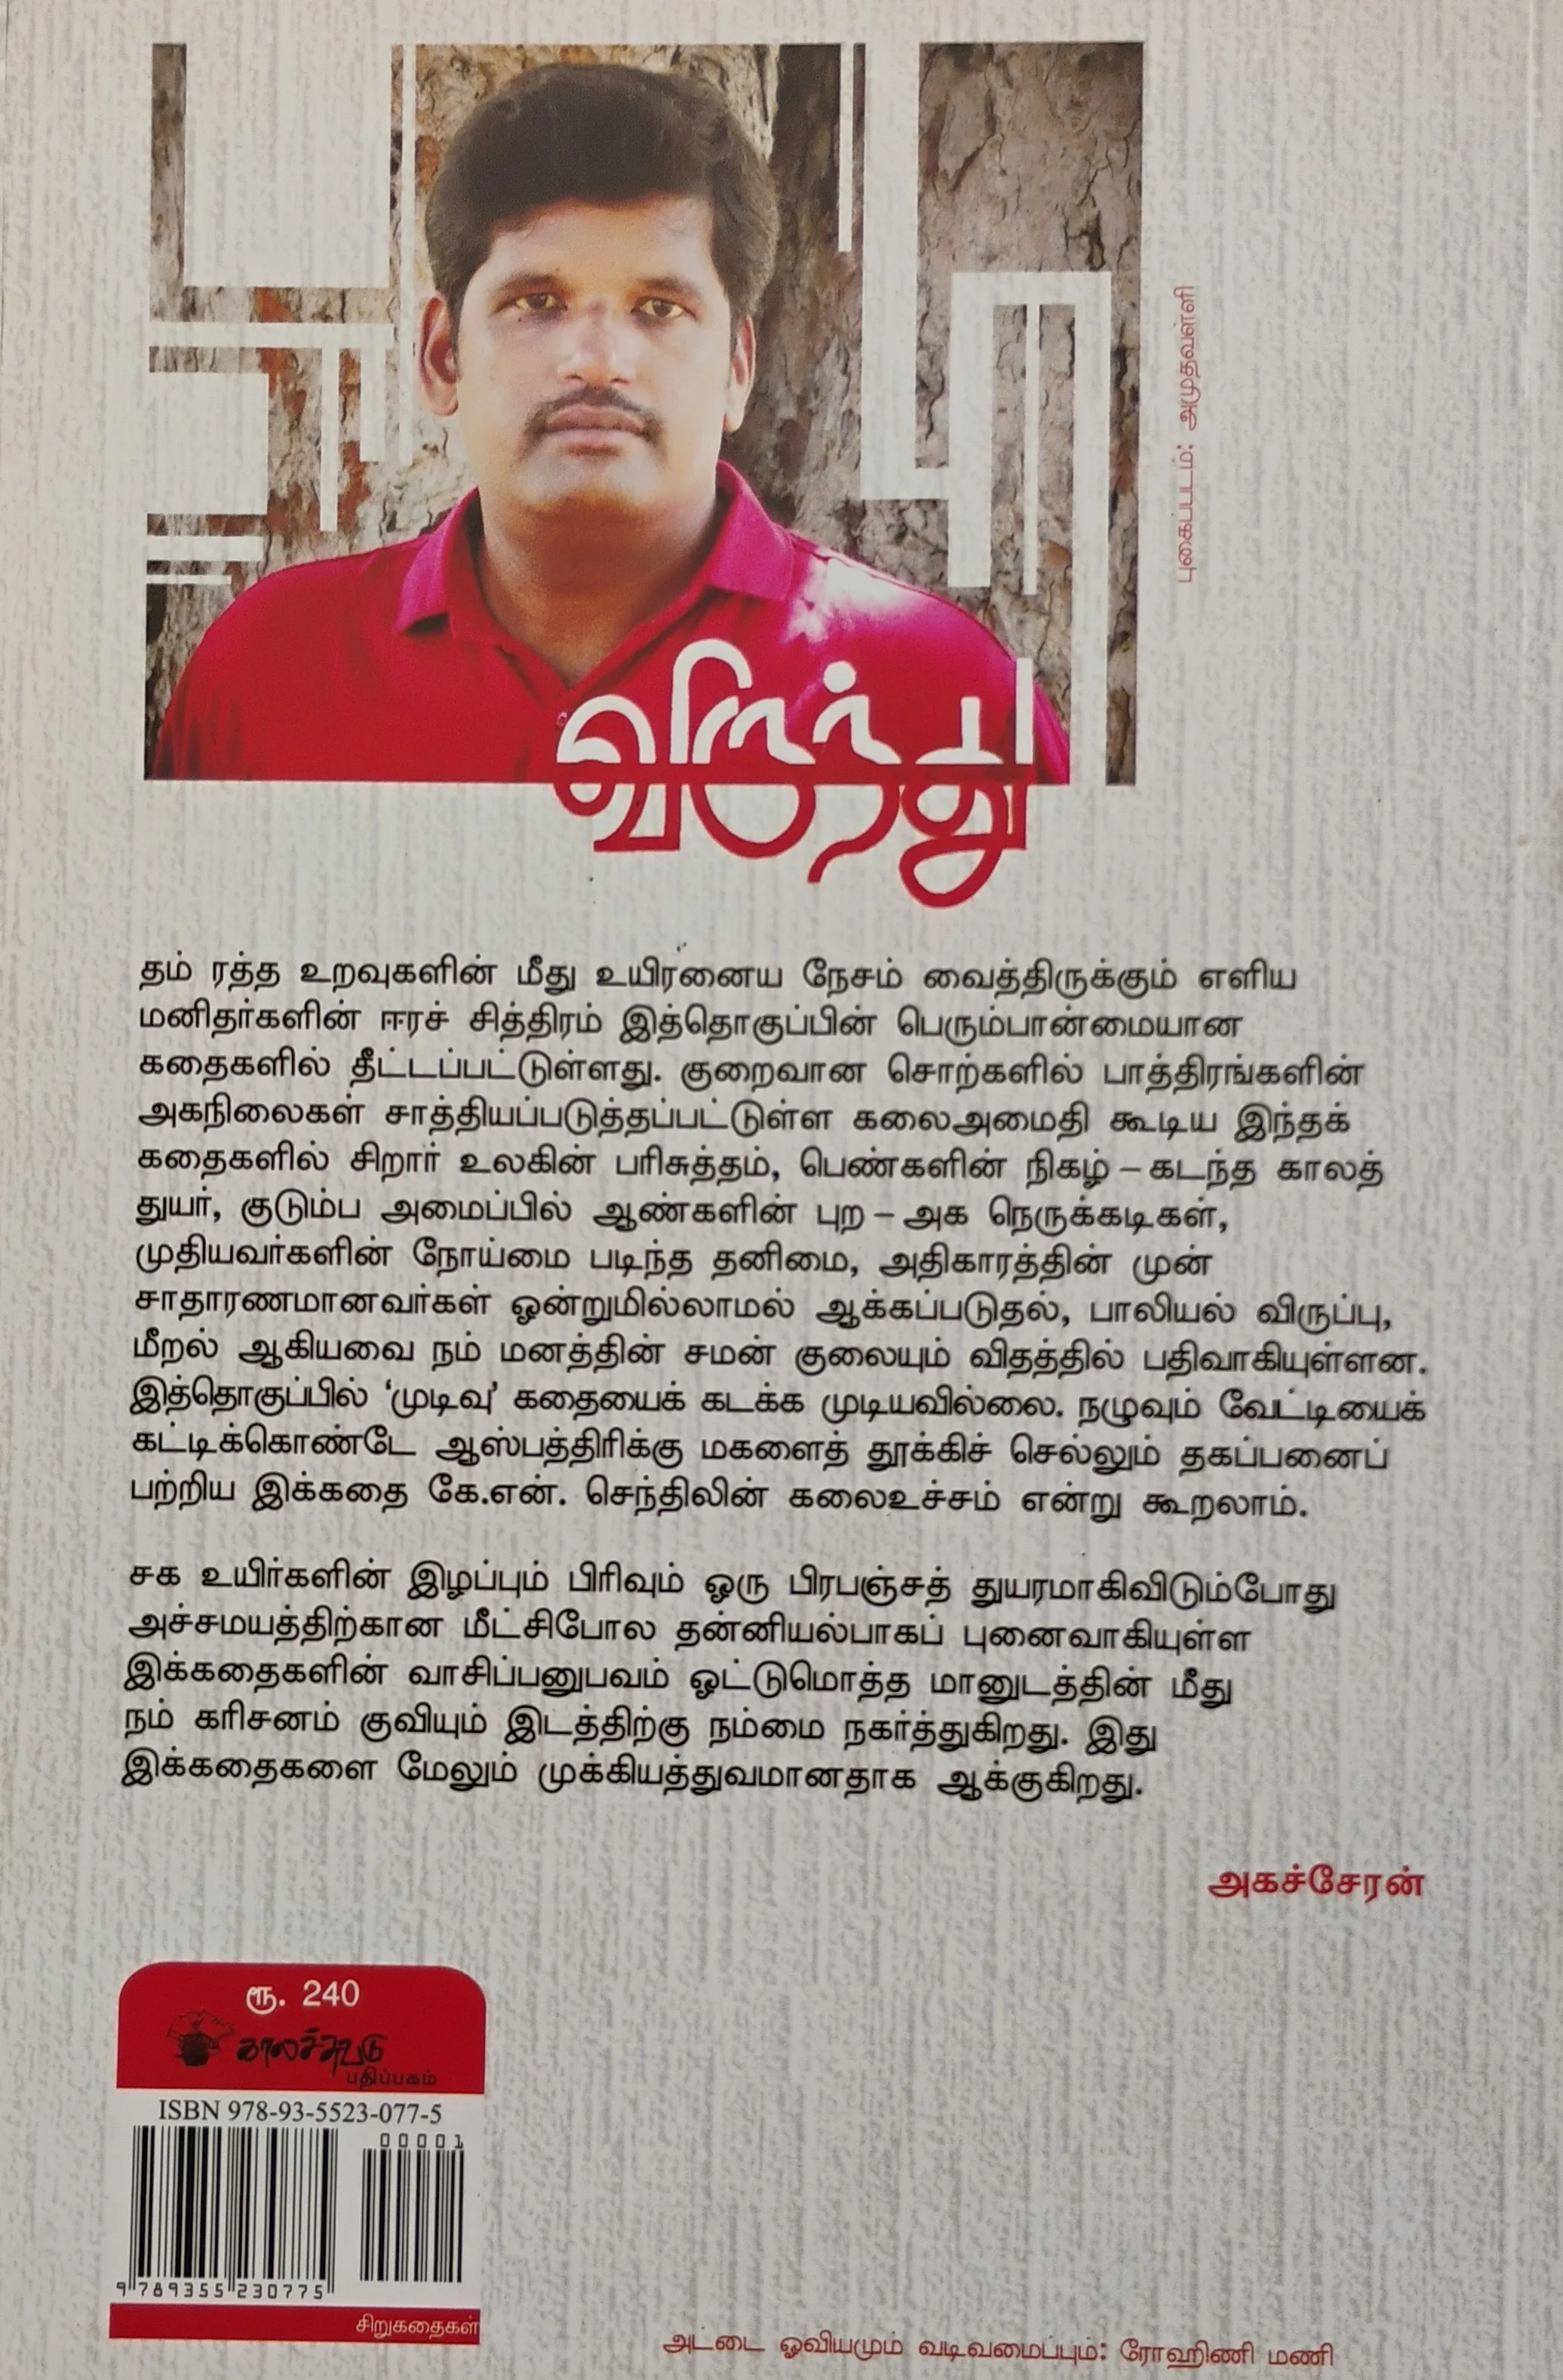 புகைப்படம்: அமுதவள்ளி
விருந்து
தம் ரத்த உறவுகளின் மீது உயிரனைய நேசம் வைத்திருக்கும் எளிய
மனிதர்களின் ஈரச் சித்திரம் இத்தொகுப்பின் பெரும்பான்மையான
கதைகளில் தீட்டப்பட்டுள்ளது. குறைவான சொற்களில் பாத்திரங்களின்
அகநிலைகள் சாத்தியப்படுத்தப்பட்டுள்ள கலைஅமைதி கூடிய இந்தக்
கதைகளில் சிறார் உலகின் பரிசுத்தம், பெண்களின் நிகழ் – கடந்த காலத்
துயர், குடும்ப அமைப்பில் ஆண்களின் புற – அக நெருக்கடிகள்,
முதியவர்களின் நோய்மை படிந்த தனிமை, அதிகாரத்தின் முன்
சாதாரணமானவர்கள் ஒன்றுமில்லாமல் ஆக்கப்படுதல், பாலியல் விருப்பு,
மீறல் ஆகியவை நம் மனத்தின் சமன் குலையும் விதத்தில் பதிவாகியுள்ளன.
இத்தொகுப்பில் ‘முடிவு’ கதையைக் கடக்க முடியவில்லை. நழுவும் வேட்டியைக்
கட்டிக்கொண்டே ஆஸ்பத்திரிக்கு மகளைத் தூக்கிச் செல்லும் தகப்பனைப்
பற்றிய இக்கதை கே.என். செந்திலின் கலைஉச்சம் என்று கூறலாம்.
சக உயிர்களின் இழப்பும் பிரிவும் ஒரு பிரபஞ்சத் துயரமாகிவிடும்போது
அச்சமயத்திற்கான மீட்சிபோல தன்னியல்பாகப் புனைவாகியுள்ள
இக்கதைகளின் வாசிப்பனுபவம் ஒட்டுமொத்த மானுடத்தின் மீது
நம் கரிசனம் குவியும் இடத்திற்கு நம்மை நகர்த்துகிறது. இது
இக்கதைகளை மேலும் முக்கியத்துவமானதாக ஆக்குகிறது.
அகச்சேரன்
ரூ. 240
காலச்சுவடு
பதிப்பகம்
ISBN 978-93-5523-077-5
00001
9 789355 230775
சிறுகதைகள்
அட்டை ஓவியமும் வடிவமைப்பும்: ரோஹிணி மணி